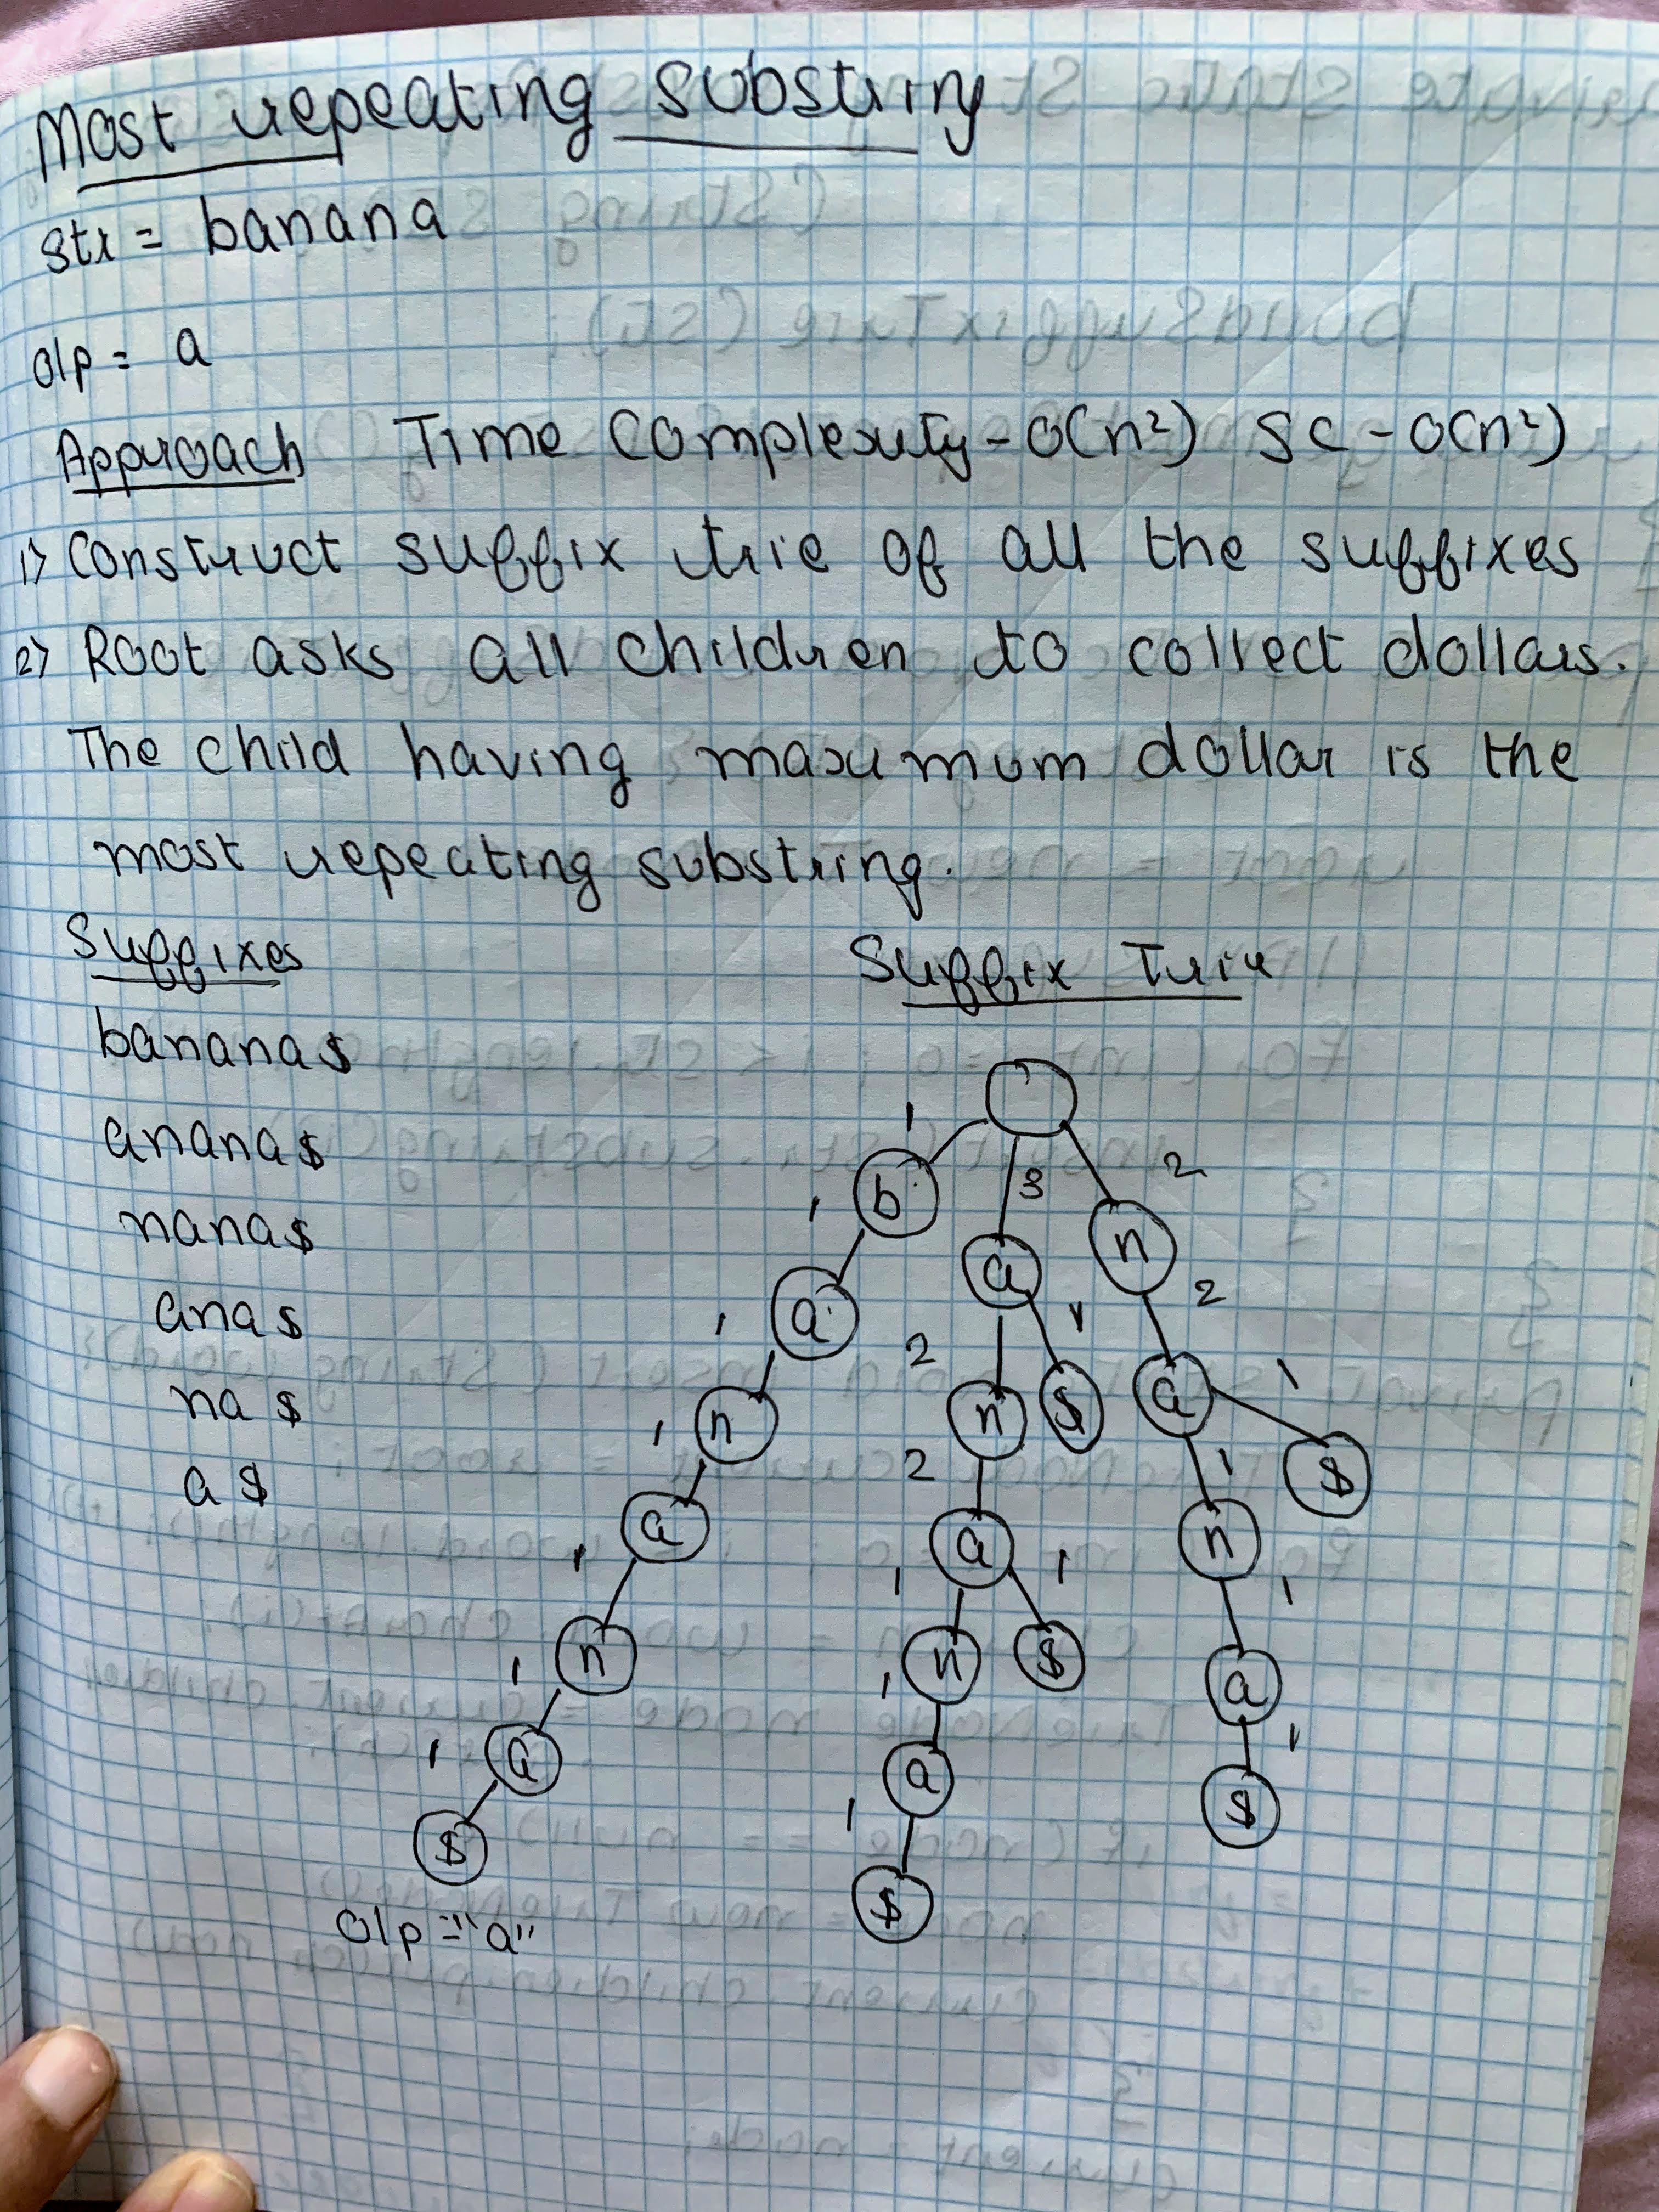 Most repeating substring
str = banana
o/p = a
Approach Time Complexity - O(n²) SC - O(n²)
1) Construct suffix trie of all the suffixes
2) Root asks all children to collect dollars.
The child having maximum dollar is the
most repeating substring.
Suffixes
banana$
anana$
nana$
ana$
na$
a$
Suffix Trie
1 3 2
b a n
1 2 1 2
a n $ a
1 2 1 1
n a n $
1 1 1 1
a n $ a
1 1 1
n a $
1 1
a $
1
$
o/p = "a"